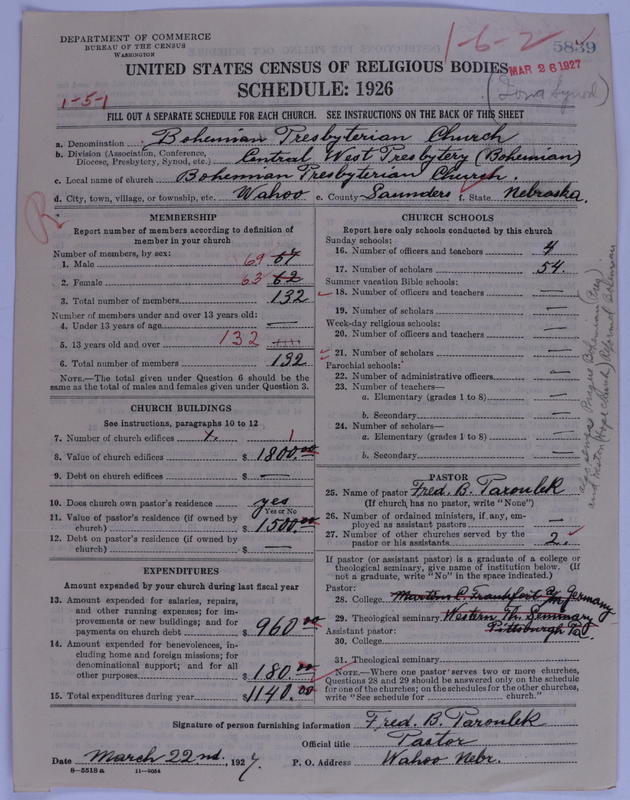 DEPARTMENT OF COMMERCE
BUREAU OF THE CENSUS
WASHINGTON
1-6-2
5839
MAR 26 1927
UNITED STATES CENSUS OF RELIGIOUS BODIES
SCHEDULE: 1926
(Iowa Synod)
1-5-1
FILL OUT A SEPARATE SCHEDULE FOR EACH CHURCH. SEE INSTRUCTIONS ON THE BACK OF THIS SHEET
a. Denomination Bohemian Presbyterian Church
b. Division (Association, Conference, Diocese, Presbytery, Synod, etc.) Central West Presbytery (Bohemian)
c. Local name of church Bohemian Presbyterian Church.
d. City, town, village, or township, etc. Wahoo e. County Saunders f. State Nebraska.
R
MEMBERSHIP
Report number of members according to definition of
member in your church
Number of members, by sex:
1. Male 69 67
2. Female 63 62
3. Total number of members 132
Number of members under and over 13 years old:
4. Under 13 years of age —
5. 13 years old and over 132
6. Total number of members 132
NOTE.—The total given under Question 6 should be the
same as the total of males and females given under Question 3.
CHURCH BUILDINGS
See instructions, paragraphs 10 to 12
7. Number of church edifices 1
8. Value of church edifices $ 1800.00
9. Debt on church edifices $ —
10. Does church own pastor's residence yes
Yes or No
11. Value of pastor's residence (if owned by
church) $ 1500.00
12. Debt on pastor's residence (if owned by
church) $ —
EXPENDITURES
Amount expended by your church during last fiscal year
13. Amount expended for salaries, repairs,
and other running expenses; for im-
provements or new buildings; and for
payments on church debt $ 960.00
14. Amount expended for benevolences, in-
cluding home and foreign missions; for
denominational support; and for all
other purposes $ 180.00
15. Total expenditures during year $ 1140.00
CHURCH SCHOOLS
Report here only schools conducted by this church
Sunday schools:
16. Number of officers and teachers 4
17. Number of scholars 54.
Summer vacation Bible schools:
18. Number of officers and teachers —
19. Number of scholars —
Week-day religious schools:
20. Number of officers and teachers —
21. Number of scholars —
Parochial schools:
22. Number of administrative officers —
23. Number of teachers—
a. Elementary (grades 1 to 8) —
b. Secondary —
24. Number of scholars—
a. Elementary (grades 1 to 8) —
b. Secondary —
PASTOR
25. Name of pastor Fred. B. Paroulek
(If church has no pastor, write "None")
26. Number of ordained ministers, if any, em-
ployed as assistant pastors —
27. Number of other churches served by the
pastor or his assistants 2.
If pastor (or assistant pastor) is a graduate of a college or
theological seminary, give name of institution below. (If
not a graduate, write "No" in the space indicated.)
Pastor:
28. College Germany
29. Theological seminary Western Th. Seminary
Pittsburgh Pa.
Assistant pastor:
30. College
31. Theological seminary
NOTE.—Where one pastor serves two or more churches,
Questions 28 and 29 should be answered only on the schedule
for one of the churches; on the schedules for the other churches,
write "See schedule for church."
Signature of person furnishing information Fred. B. Paroulek
Official title Pastor
Date March 22nd, 1927. P. O. Address Wahoo Nebr.
8-5518a 11-9054